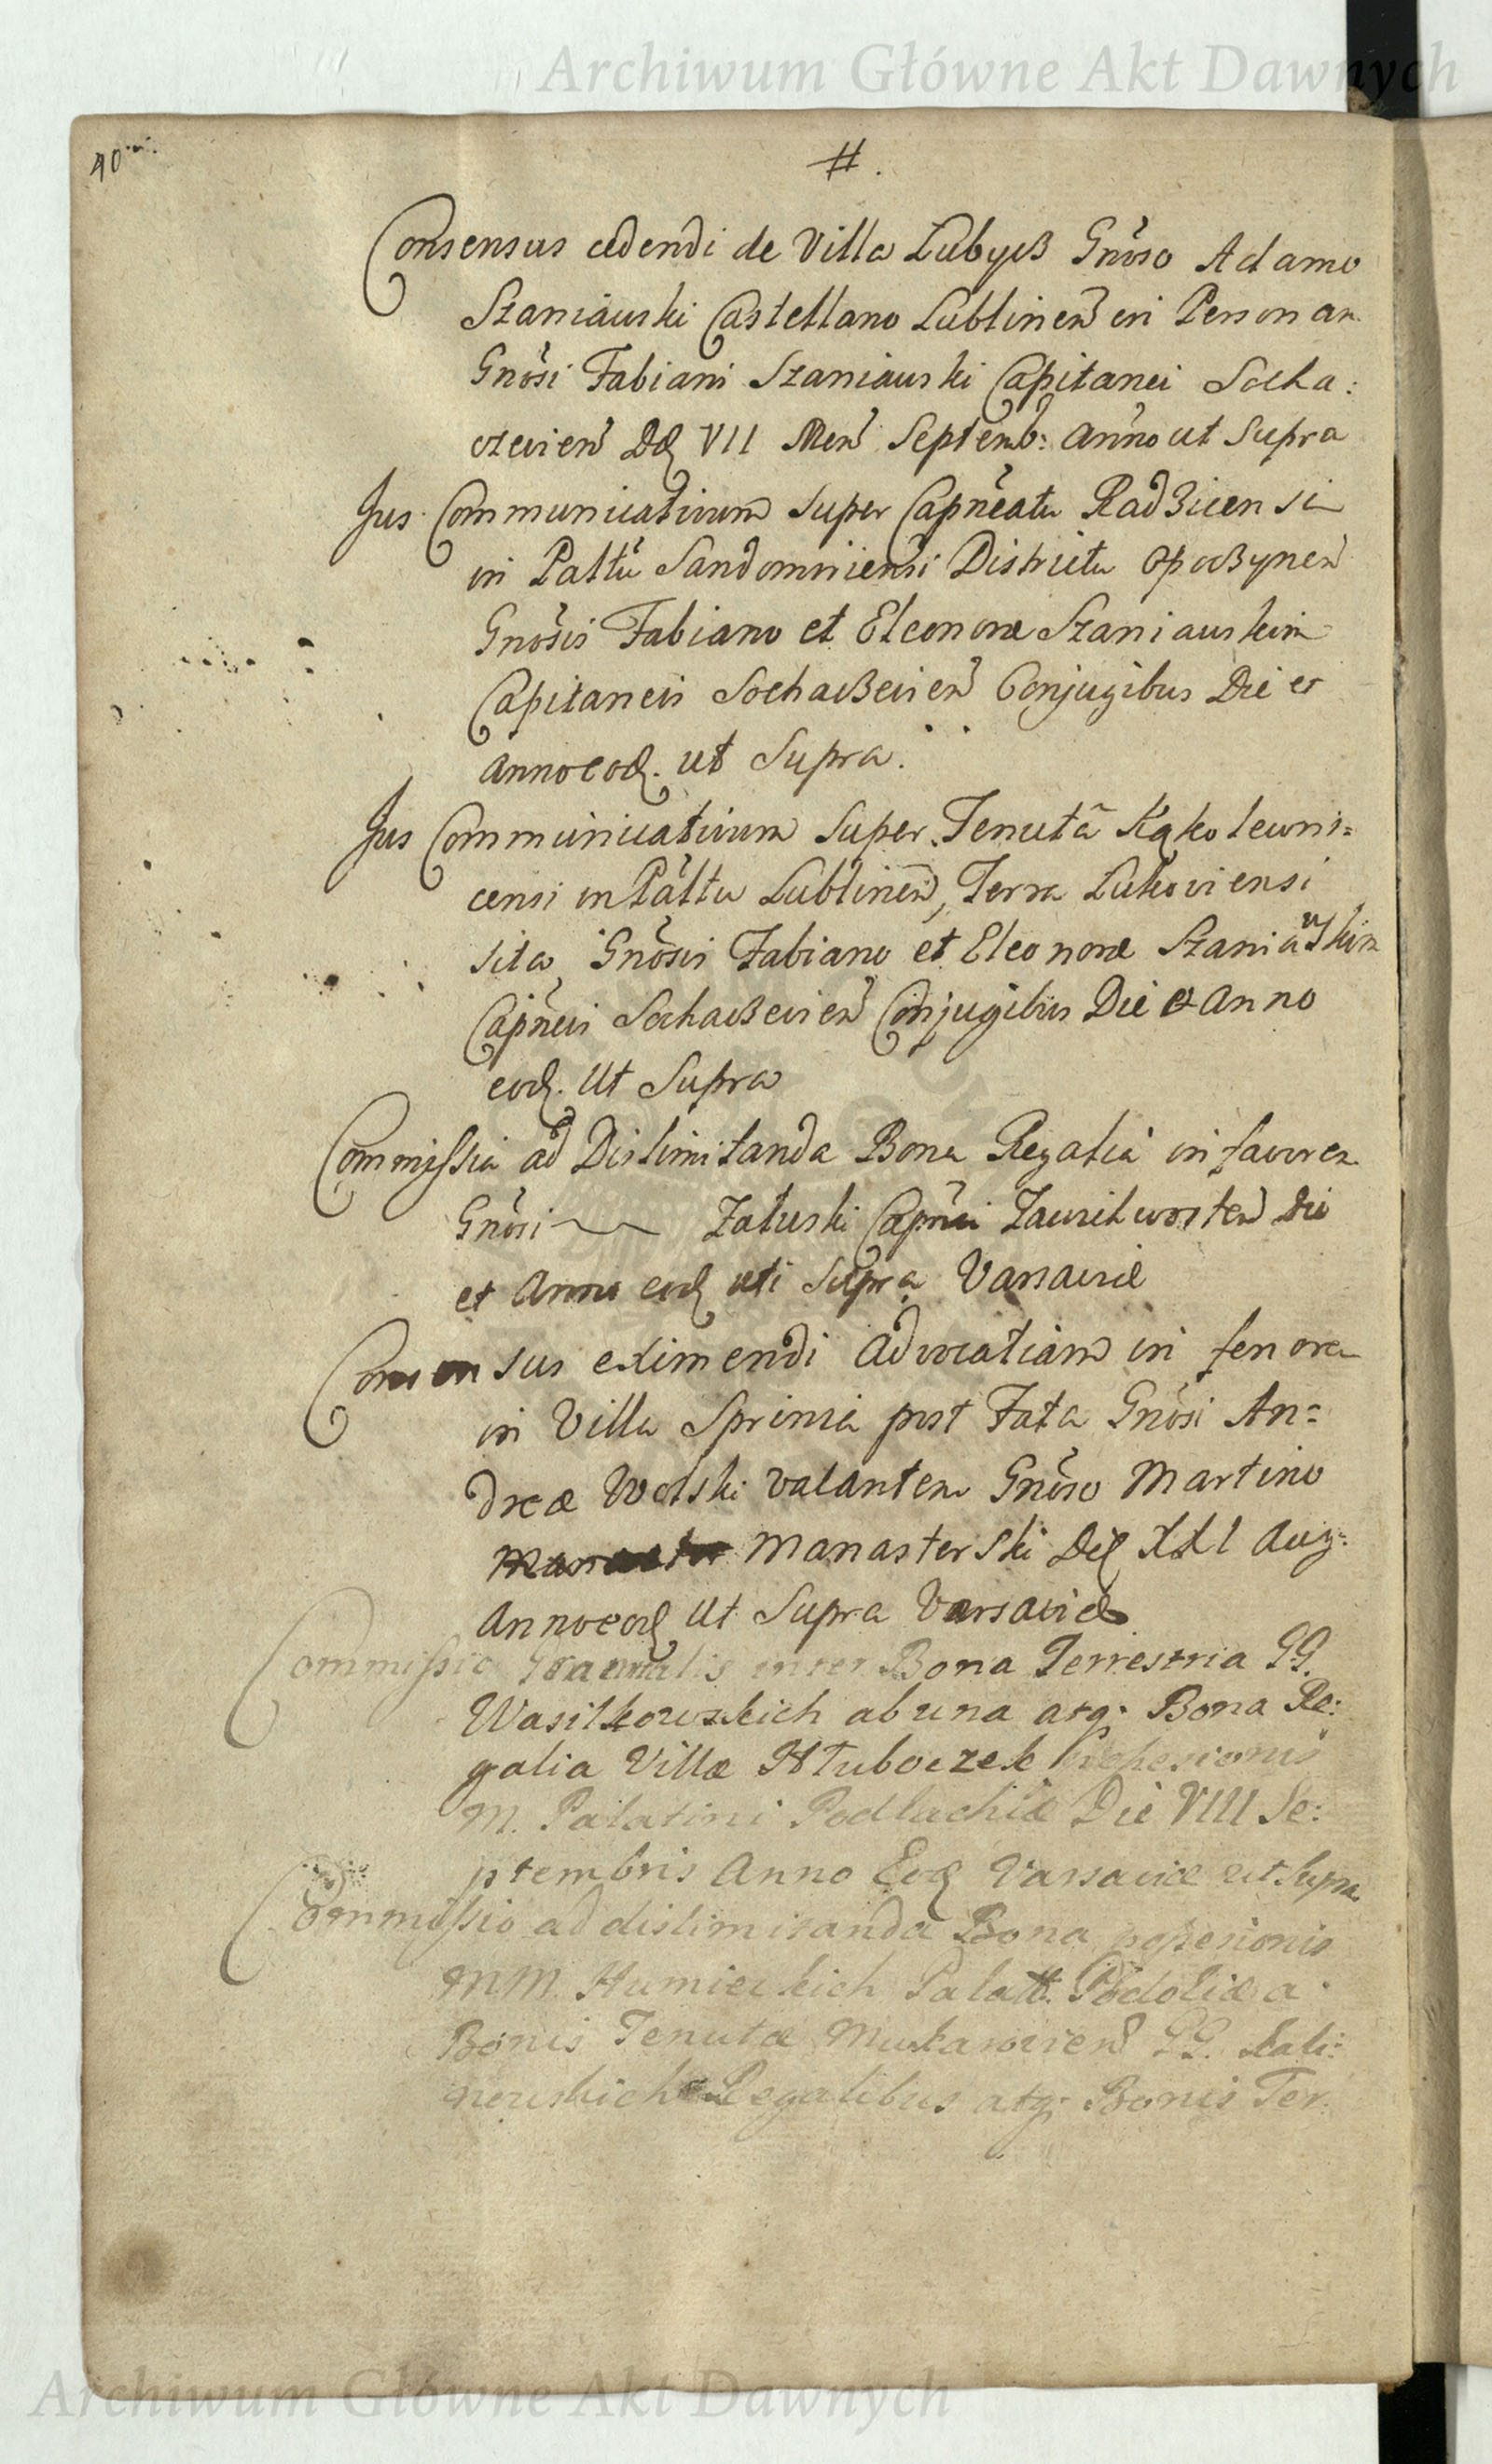 Archiwum Główne Akt Dawnych
40
#.
Consensus cedendi de Villa Lubycß Gnöso Adamo
Szaniawski Castellano Lublinen in Personam
Gnösi Fabiani Szaniawski Capitanei Socha:
czevien Dę VII Men Septemb: Anno ut Supra
Jus Communicativum Super Capneatu Radßicensi
in Palltu Sandomiriensi Districtu Opocßynen
Gnösis Fabiano et Eleonoræ Szaniawskim
Capitaneis Sochacßevien Conjugibus Die et
Anno eod. ut Supra.
Jus Communicativum Super Tenuta Kąkolewni=
censi in Palltu Lublinen, Terra Lukoviensi
sita Gnösis Fabiano et Eleonoræ Szaniawskim
Capneis Sochacßevien Conjugibus Die et Anno
eod. ut Supra
Commissia ad Dislimitanda Bona Regalia in favorem
Gnösi Załuski Capnei Die
et Anno eod uti Supra Varsaviæ
Consensus eximendi Advocatiam in
in Villa post Fata Gnösi An=
dreæ Wolski vacantem Gnöso Martino
Manasterski Die XXI Aug:
Anno eod ut Supra Varsaviæ
Commissio inter Bona Terrestria GG.
Wasilkowskich ab una atq: Bona Re:
galia Villæ Hłuboczek
M. Palatini Podlachiæ Die VIII Se:
ptembris Anno Eod Varsaviæ ut supra
Commissio ad dislimitanda Bona possesionis
MM. Humieckich Palatt. Podoliæ a
Bonis Tenutæ GG. Kali:
nowskich Regalibus atq: Bonis Ter:
Archiwum Główne Akt Dawnych